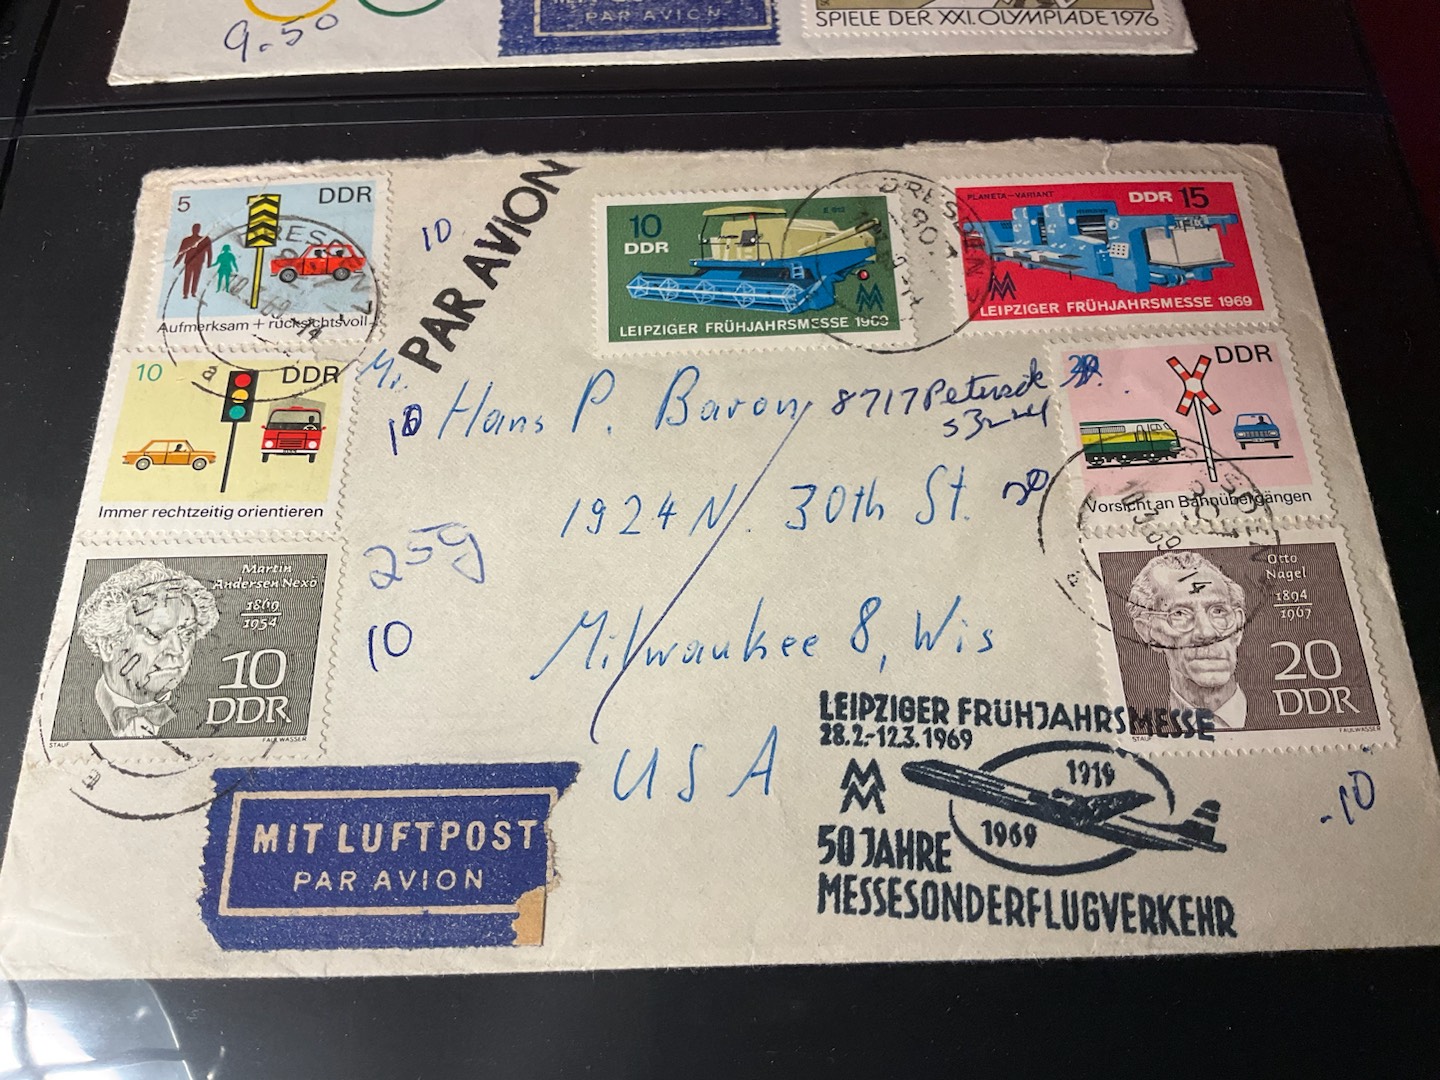 9.50
PAR AVION
SPIELE DER XXI. OLYMPIADE 1976
5 DDR
Aufmerksam + rücksichtsvoll
10 DDR
Immer rechtzeitig orientieren
Martin
Andersen Nexö
1869
1954
10
DDR
STAUF FAULWASSER
10
PAR AVION
10
DDR
E 512
LEIPZIGER FRÜHJAHRSMESSE 1969
PLANETA-VARIANT
DDR 15
LEIPZIGER FRÜHJAHRSMESSE 1969
DRESDEN
DDR
Vorsicht an Bahnübergängen
Otto
Nagel
1894
1967
20
DDR
STAUF FAULWASSER
Mr.
Hans P. Baron 8717
10
1924 N. 30th St. 20
25g
10
Milwaukee 8, Wis
USA
-10
MIT LUFTPOST
PAR AVION
LEIPZIGER FRÜHJAHRSMESSE
28.2.-12.3.1969
MM
1919
1969
50 JAHRE
MESSESONDERFLUGVERKEHR